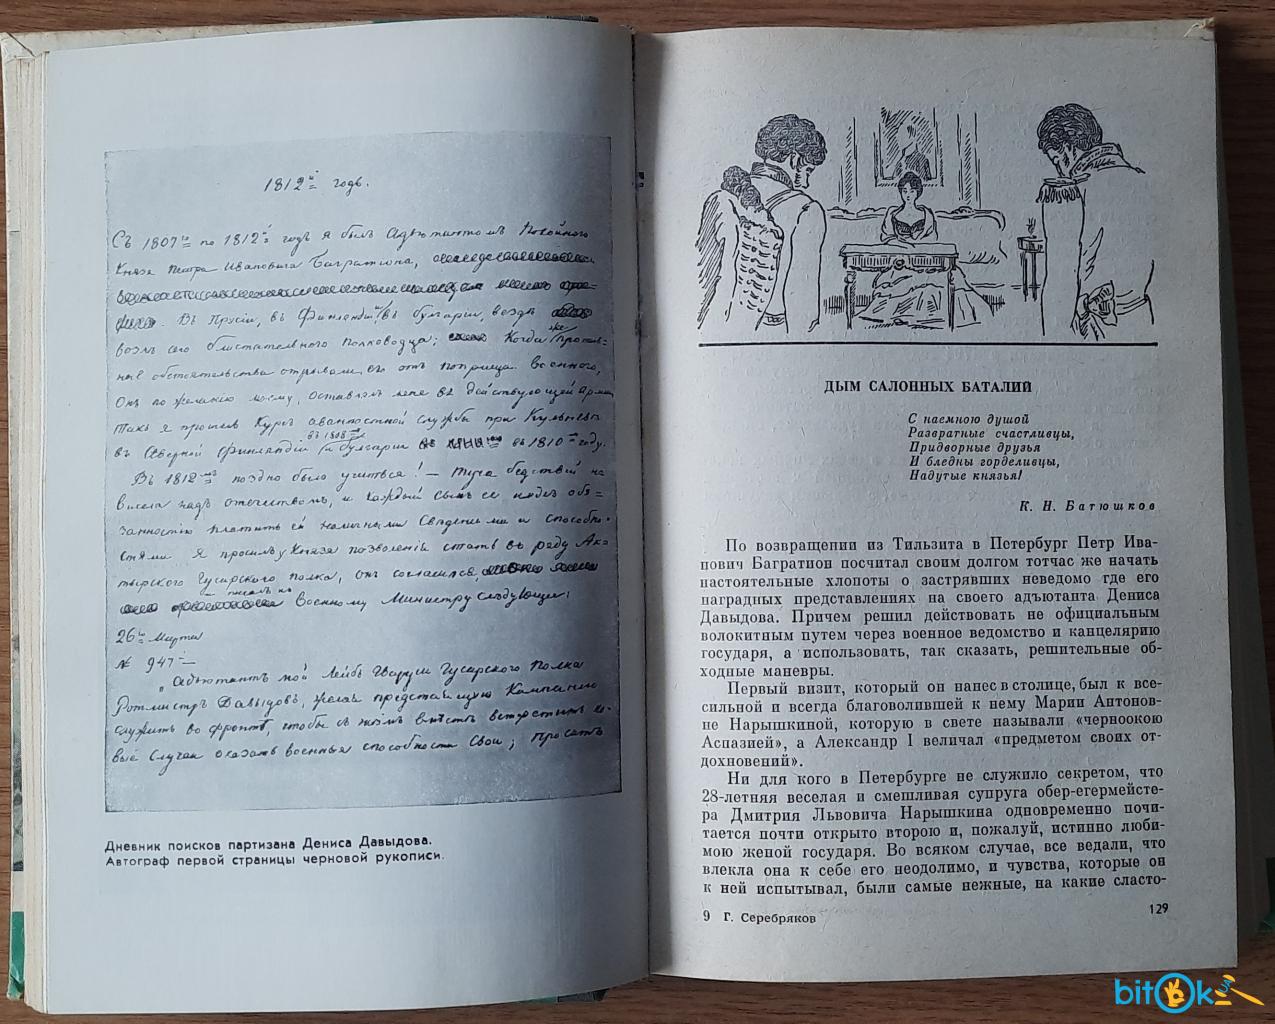 1812й годъ.
Съ 1807го по 1812й годъ я былъ Адъютантомъ Покойного
Князя Петра Ивановича Багратиона,
Въ Прусіи, въ Финляндіи въ Булгаріи, вездѣ
возлѣ его блистательного полководца; Когда же против-
ные обстоятельства отрывали его отъ поприща Военного,
Онъ по желанію моему, оставлялъ меня въ Действующей Арміи
Такъ я прошелъ Курсъ аванпостной службы при Кульневѣ
въ 1808мъ
въ Северной Финляндіи и Булгаріи въ 1810мъ году.
Въ 1812мъ поздно было учиться! — Туча бедствій на-
висла надъ отечествомъ, и каждый сынъ ее
обя-
занностію платить ей наличными Сведеніями и способно-
стями. Я просилъ у Князя позволеніи стать въ ряду Ах-
тырского Гусарского полка, онъ согласился,
Военному Министру следующее:
26го Марта
№ 947 —
„Адъютантъ мой Лейбъ Гвардіи Гусарского Полка
Ротмистръ Давыдовъ, желая предстоящую Кампанію
служить во фронтѣ, чтобы съ
вые случаи оказать военныя способности свои; просятъ
Дневник поисков партизана Дениса Давыдова.
Автограф первой страницы черновой рукописи.
ДЫМ САЛОННЫХ БАТАЛИЙ
С наемною душой
Развратные счастливцы,
Придворные друзья
И бледны горделивцы,
Надутые князья!
К. Н. Батюшков
По возвращении из Тильзита в Петербург Петр Ива-
нович Багратион посчитал своим долгом тотчас же начать
настоятельные хлопоты о застрявших неведомо где его
наградных представлениях на своего адъютанта Дениса
Давыдова. Причем решил действовать не официальным
волокитным путем через военное ведомство и канцелярию
государя, а использовать, так сказать, решительные об-
ходные маневры.
Первый визит, который он нанес в столице, был к все-
сильной и всегда благоволившей к нему Марии Антонов-
не Нарышкиной, которую в свете называли «черноокою
Аспазией», а Александр I величал «предметом своих от-
дохновений».
Ни для кого в Петербурге не служило секретом, что
28-летняя веселая и смешливая супруга обер-егермейсте-
ра Дмитрия Львовича Нарышкина одновременно почи-
тается почти открыто второю и, пожалуй, истинно люби-
мою женой государя. Во всяком случае, все ведали, что
влекла она к себе его неодолимо, и чувства, которые он
к ней испытывал, были самые нежные, на какие сласто-
9 Г. Серебряков
129
bitok
UA